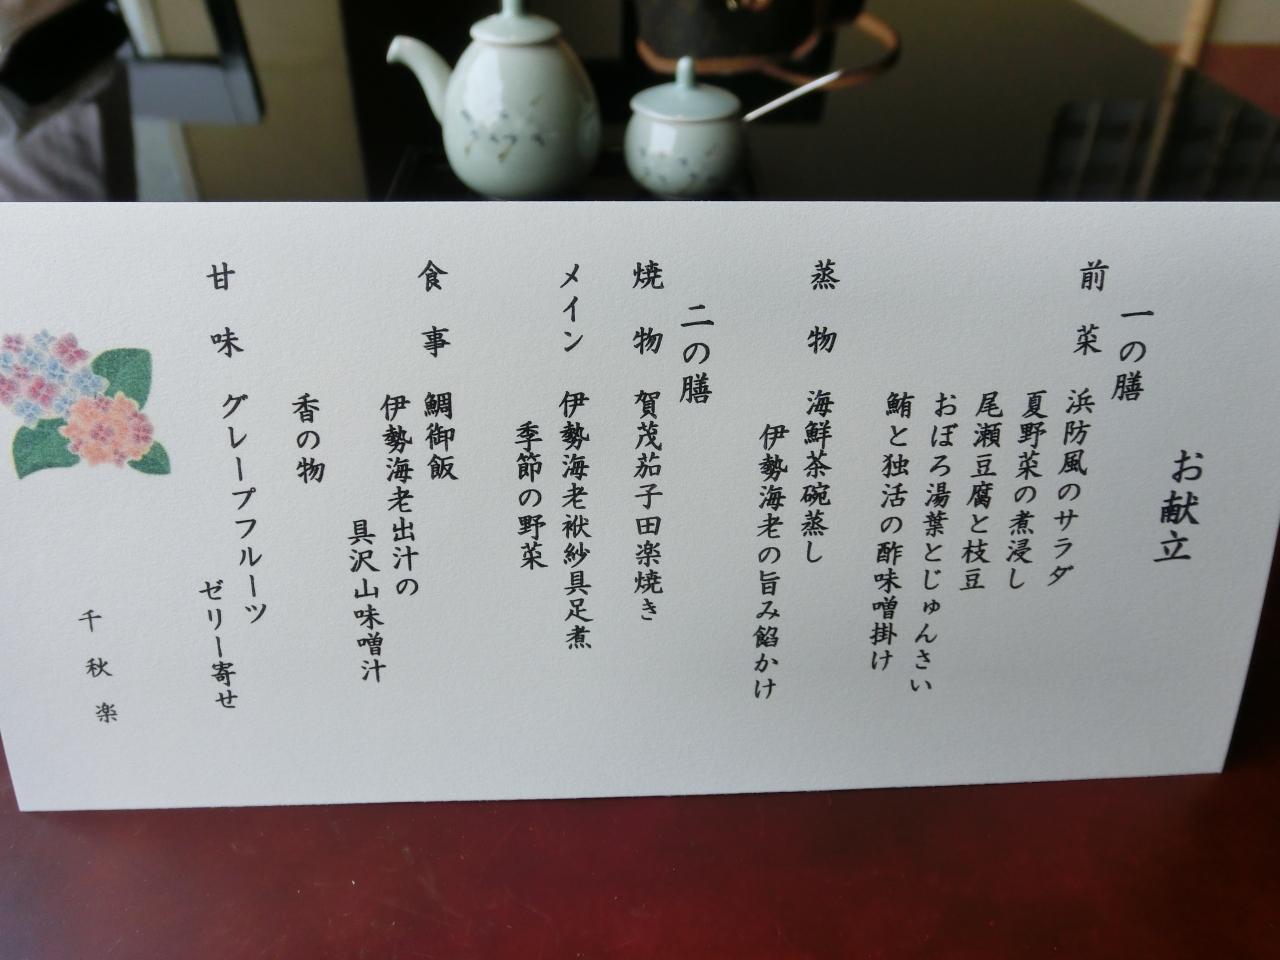 お献立
一の膳
前菜
浜防風のサラダ
夏野菜の煮浸し
尾瀬豆腐と枝豆
おぼろ湯葉とじゅんさい
鮪と独活の酢味噌掛け
蒸物
海鮮茶碗蒸し
伊勢海老の旨み餡かけ
二の膳
焼物
賀茂茄子田楽焼き
メイン
伊勢海老袱紗具足煮
季節の野菜
食事
鯛御飯
伊勢海老出汁の
具沢山味噌汁
香の物
甘味
グレープフルーツ
ゼリー寄せ
千秋楽